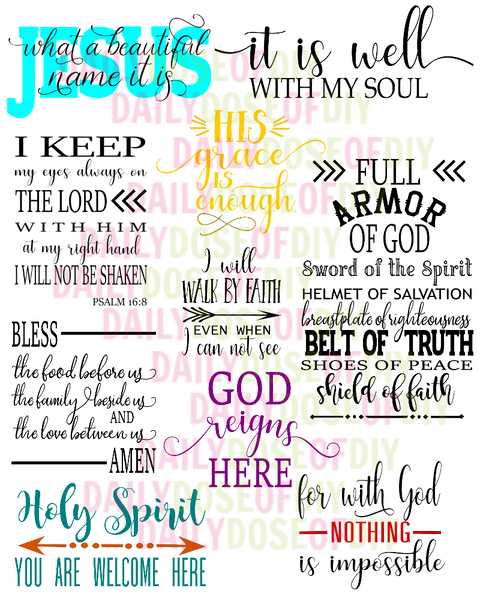 JESUS
what a beautiful
name it is
it is well
WITH MY SOUL
HIS
grace
IS
enough
I KEEP
my eyes always on
THE LORD
WITH HIM
at my right hand
I WILL NOT BE SHAKEN
PSALM 16:8
FULL
ARMOR
OF GOD
Sword of the Spirit
HELMET OF SALVATION
breastplate of righteousness
BELT OF TRUTH
SHOES OF PEACE
shield of faith
I will
WALK BY FAITH
EVEN WHEN
I can not see
BLESS
the food before us
the family beside us
AND
the love between us
AMEN
GOD
reigns
HERE
Holy Spirit
YOU ARE WELCOME HERE
for with God
NOTHING
is impossible
DAILYDOSEOFDIY